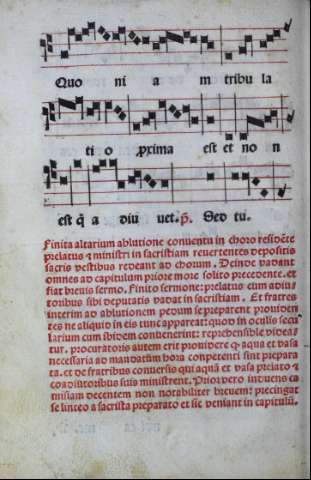 Quo ni a m tribu la
ti o ꝓxima est et no n
est q̄ a diu uet. ꝟ. Sed tu.
Finita altarium ablutione conuentu in choro residēte
prelatus ⁊ ministri in sacristiam reuertentes depositis
sacris vestibus redeant ad chorum. Deinde vadant
omnes ad capitulum priore more solito precedente. et
fiat breuis sermo. Finito sermone: prelatus cum adiu
toribus sibi deputatis vadat in sacristiam. Et fratres
interim ad ablutionem pedum se preparent prouiden
tes ne aliquid in eis tunc appareat: quod in oculis secu
larium cum ibidem conuenerint: reprehensibile videa
tur. procuratoris autem erit prouidere ꝙ aqua et vasa
necessaria ad mandatum hora competenti sint prepara
ta. et de fratribus conuersis qui aquā et vasa prelato ⁊
coadiutoribus suis ministrent. Prior vero induens ca
misiam decentem non notabiliter breuem: precingat
se linteo a sacrista preparato et sic veniant in capitulū.